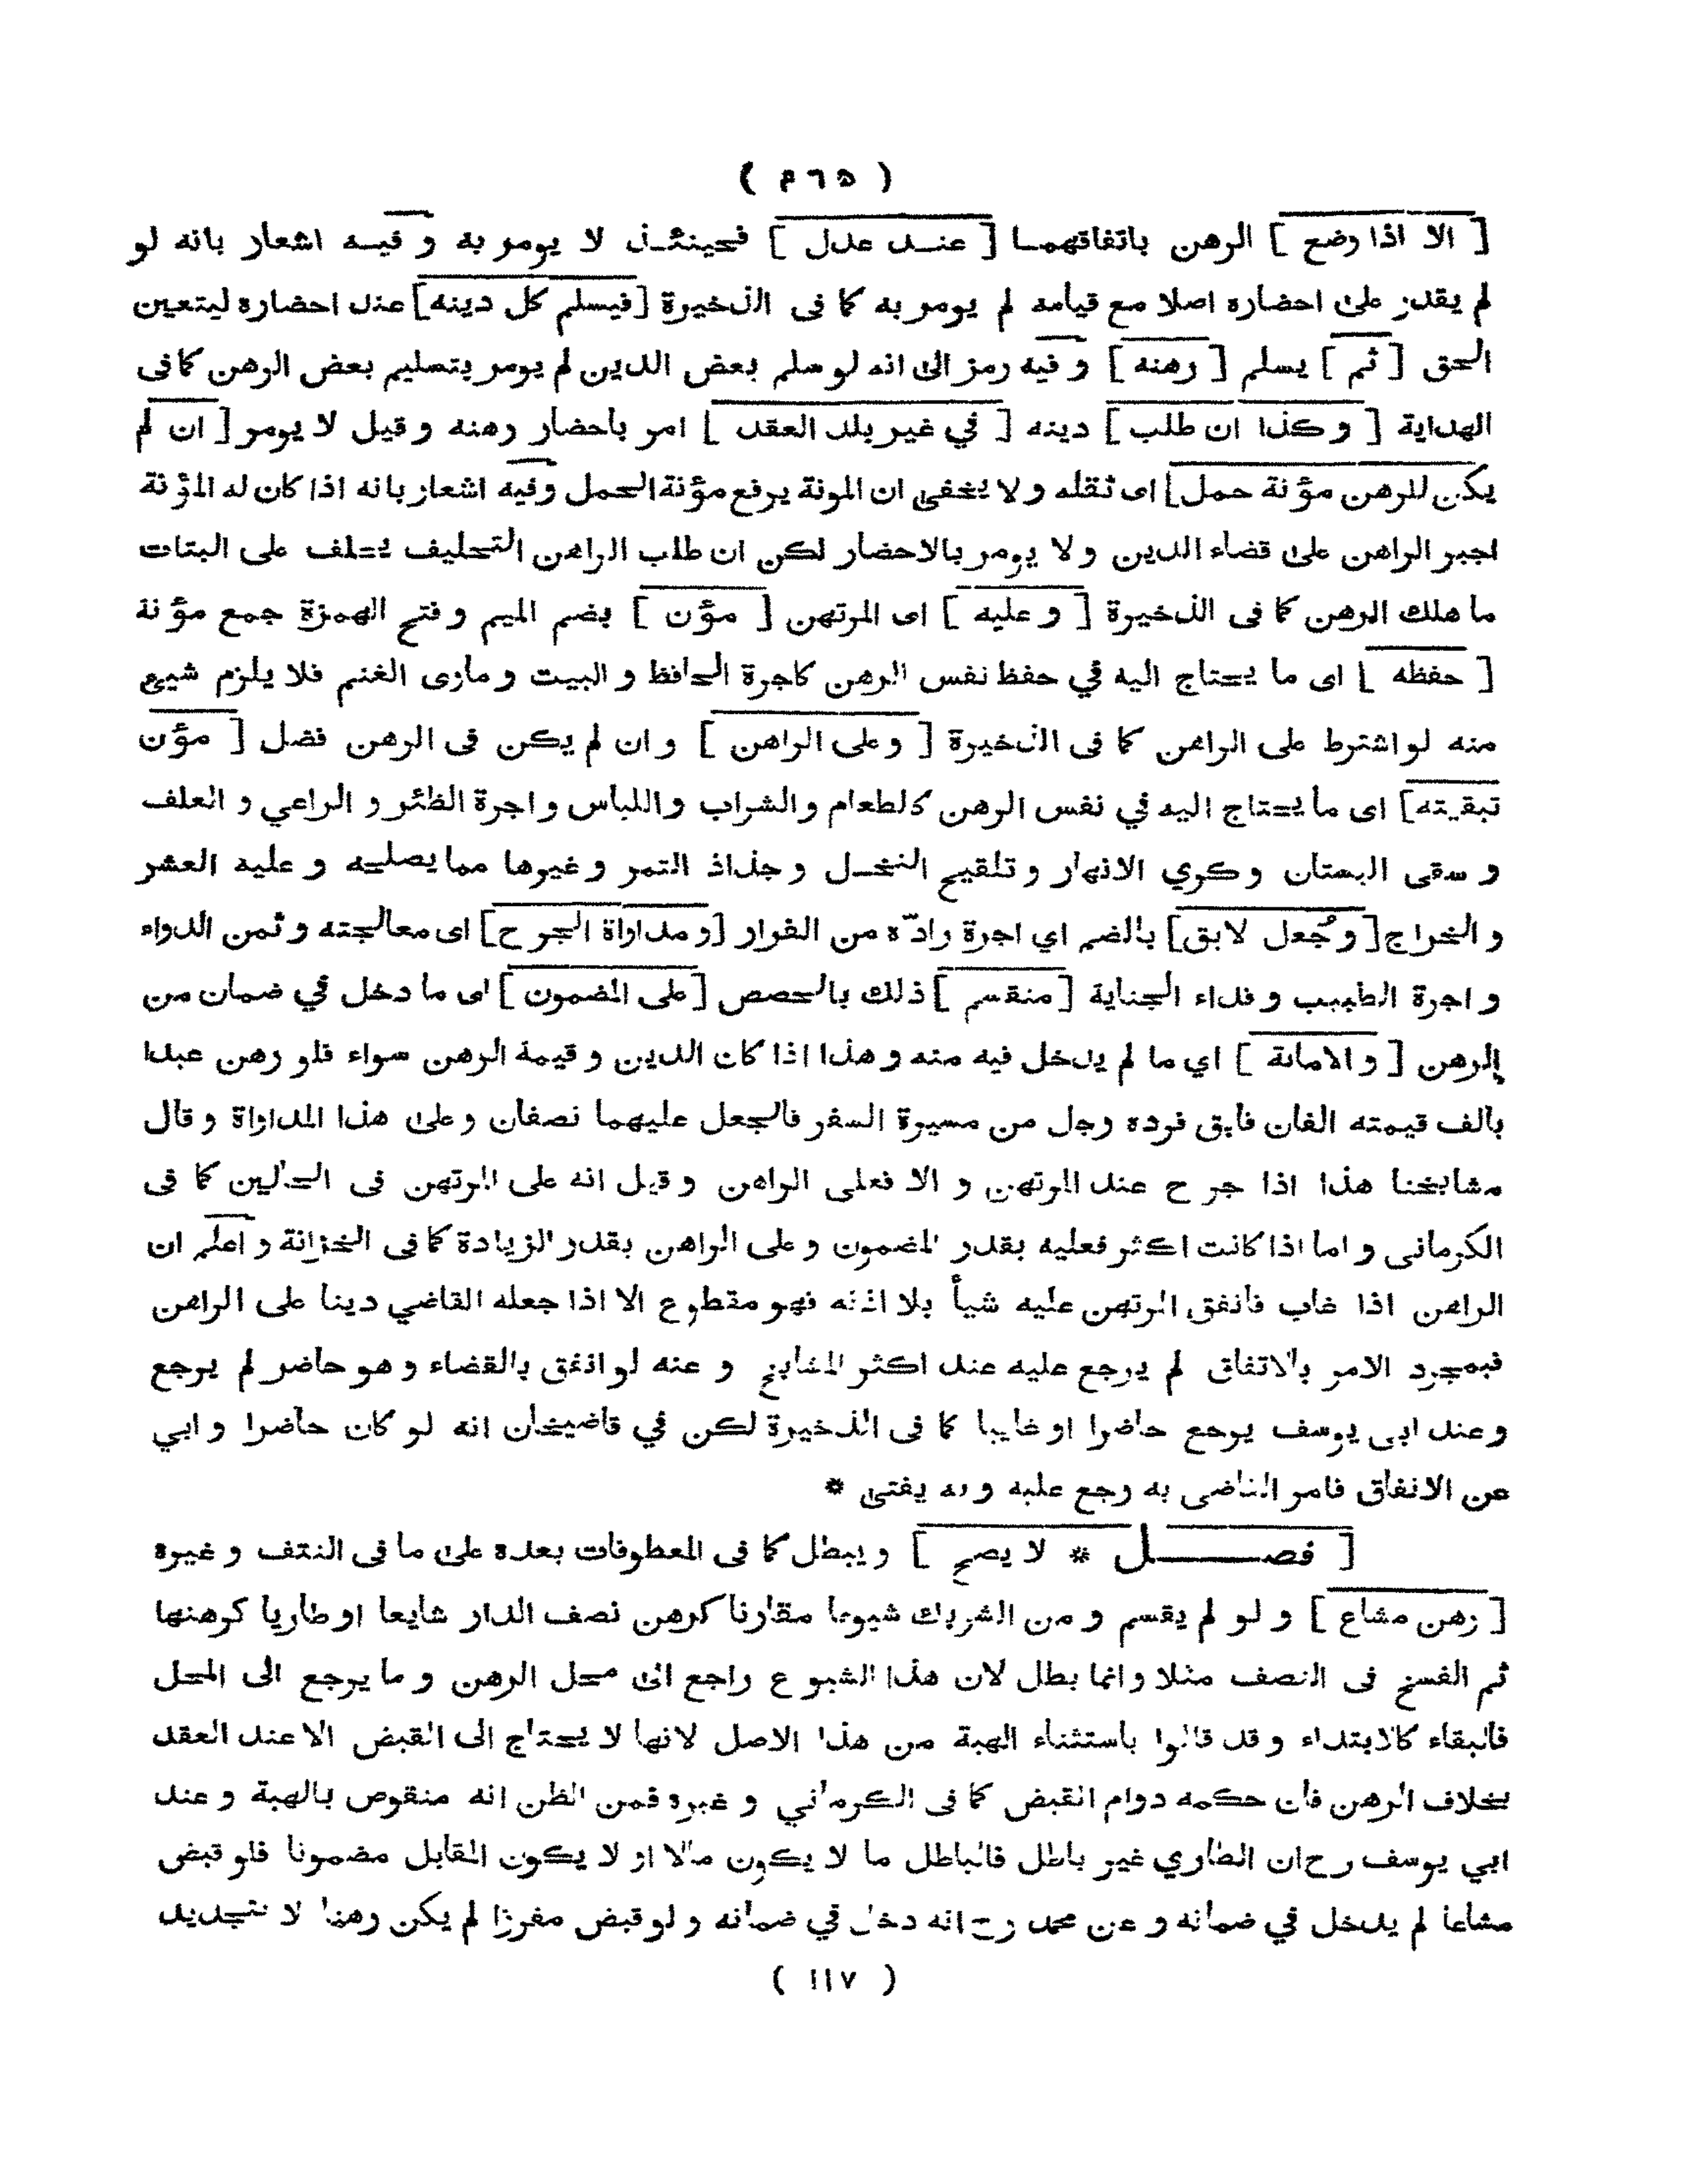 ( ٥٦٤ )
[ الا اذا وضع ] الرهن باتفاقهما [ عند عدل ] فحينئذ لا يومر به و فيه اشعار بانه لو
لم يقدر على احضاره اصلا مع قيامه لم يومر به كما فى الذخيرة [فيسلم كل دينه] عند احضاره ليتعين
الحق [ ثم ] يسلم [ رهنه ] و فيه رمز الى انه لو سلم بعض الدين لم يومر بتسليم بعض الرهن كما فى
الهداية [ و كذا ان طلب ] دينه [ في غير بلد العقد ] امر باحضار رهنه و قيل لا يومر [ ان لم
يكن للرهن مؤنة حمل] اى ثقله و لا يخفى ان المونة يرفع مؤنة الحمل وفيه اشعار بانه اذا كان له المؤنة
اجبر الراهن على قضاء الدين و لا يومر بالاحضار لكن ان طلب الراهن التحليف يحلف على البتات
ما هلك الرهن كما فى الذخيرة [ و عليه ] اى المرتهن [ مؤن ] بضم الميم و فتح الهمزة جمع مؤنة
[ حفظه ] اى ما يحتاج اليه في حفظ نفس الرهن كاجرة الحافظ و البيت و مارى الغنم فلا يلزم شيع
منه لو اشترط على الراهن كما فى الذخيرة [ و على الراهن ] و ان لم يكن فى الرهن فضل [ مؤن
تبقيته] اى ما يحتاج اليه في نفس الرهن كالطعام و الشراب واللباس و اجرة الظئر و الراعي و العلف
و سقى البستان و كري الانهار و تلقيح النخل و جذاذ التمر و غيرها مما يصلحه و عليه العشر
و الخراج [و جُعل لابق] بالضم اي اجرة رادّه من الفرار [و مداواة الجرح] اى معالجته و ثمن الدواء
و اجرة الطبيب و فداء الجناية [منقسم ] ذلك بالحصص [على المضمون] اى ما دخل في ضمان من
الرهن [ و الامانة ] اي ما لم يدخل فيه منه و هذا اذا كان الدين و قيمة الرهن سواء فلو رهن عبدا
بالف قيمته الفان فابق فرده رجل من مسيرة السفر فالجعل عليهما نصفان و على هذا المداواة و قال
مشايخنا هذا اذا جرح عند المرتهن و الا فعلى الراهن و قيل انه على المرتهن فى الحالين كما فى
الكرمانى و اما اذا كانت اكثر فعليه بقدر المضمون و على الراهن بقدر الزيادة كما فى الخزانة و اعلم ان
الراهن اذا غاب فانفق المرتهن عليه شيأ بلا اذنه فهو مقطوع الا اذا جعله القاضي دينا على الراهن
فبمجرد الامر بالاتفاق لم يرجع عليه عند اكثر المشايخ و عنه لو انفق بالقضاء و هو حاضر لم يرجع
و عند ابى يوسف يرجع حاضرا او غايبا كما فى الذخيرة لكن في قاضيخان انه لو كان حاضرا و ابي
عن الانفاق فامر القاضى به رجع عليه و به يفتى *
[ فصـــل * لا يصح ] و يبطل كما فى المعطوفات بعده على ما فى النتف و غيره
[ رهن مشاع ] و لو لم يقسم و من الشريك شيوعا مقارنا كرهن نصف الدار شايعا او طاريا كرهنها
ثم الفسخ فى النصف مثلا و انما بطل لان هذا الشيوع راجع الى محل الرهن و ما يرجع الى المحل
فالبقاء كالابتداء و قد قالوا باستثناء الهبة من هذا الاصل لانها لا يحتاج الى القبض الا عند العقد
بخلاف الرهن فان حكمه دوام القبض كما فى الكرماني و غيره فمن الظن انه منقوص بالهبة و عند
ابي يوسف رح ان الطاري غير باطل فالباطل ما لا يكون مالا او لا يكون المقابل مضمونا فلو قبض
مشاعا لم يدخل في ضمانه و عن محمد رح انه دخل في ضمانه و لو قبض مفرزا لم يكن رهنا لا بتجديد
( ١١٧ )